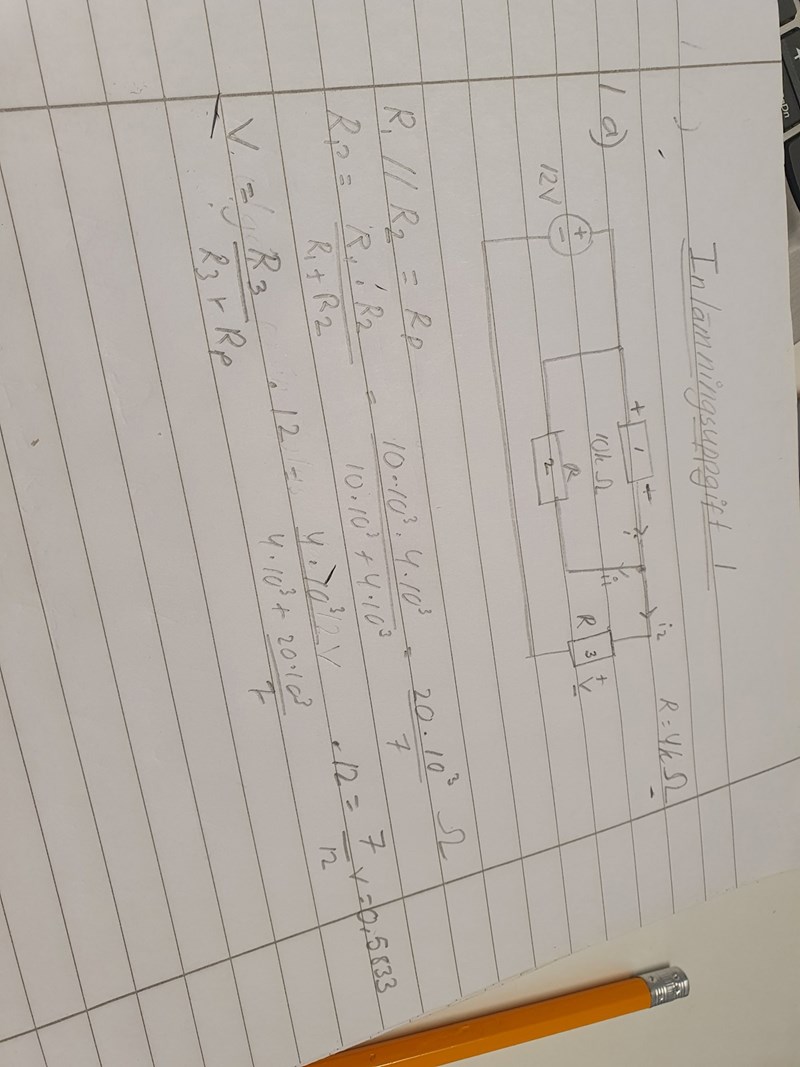 Inlämningsuppgift 1
1 a)
R = 4kΩ
12V
+
-
+ 1 +
10kΩ
R
2
i1
i2
R 3 + V -
R1 // R2 = Rp
Rp = R1 · R2 / R1 + R2 = 10·10³ · 4·10³ / 10·10³ + 4·10³ = 20·10³ / 7 Ω
V = R3 / R3 + Rp · 12 = 4·10³ / 4·10³ + 20·10³ / 7 · 12 = 7 / 12 V = 0,5833